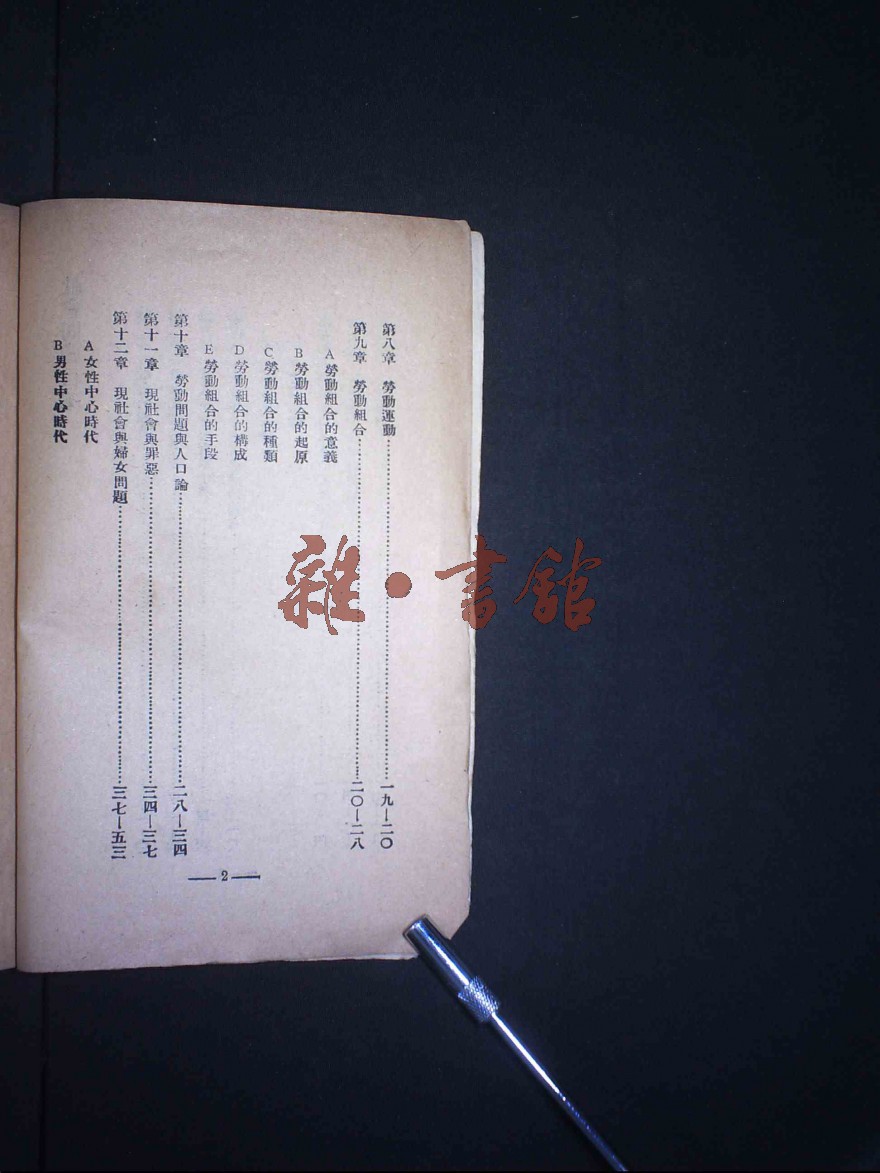 第八章　勞動運動……一九—二〇
第九章　勞動組合……二〇—二八
A 勞動組合的意義
B 勞動組合的起原
C 勞動組合的種類
D 勞動組合的構成
E 勞動組合的手段
第十章　勞動問題與人口論……二八—三四
第十一章　現社會與罪惡……三四—三七
第十二章　現社會與婦女問題……三七—五三
A 女性中心時代
B 男性中心時代
— 2 —
雜·書館